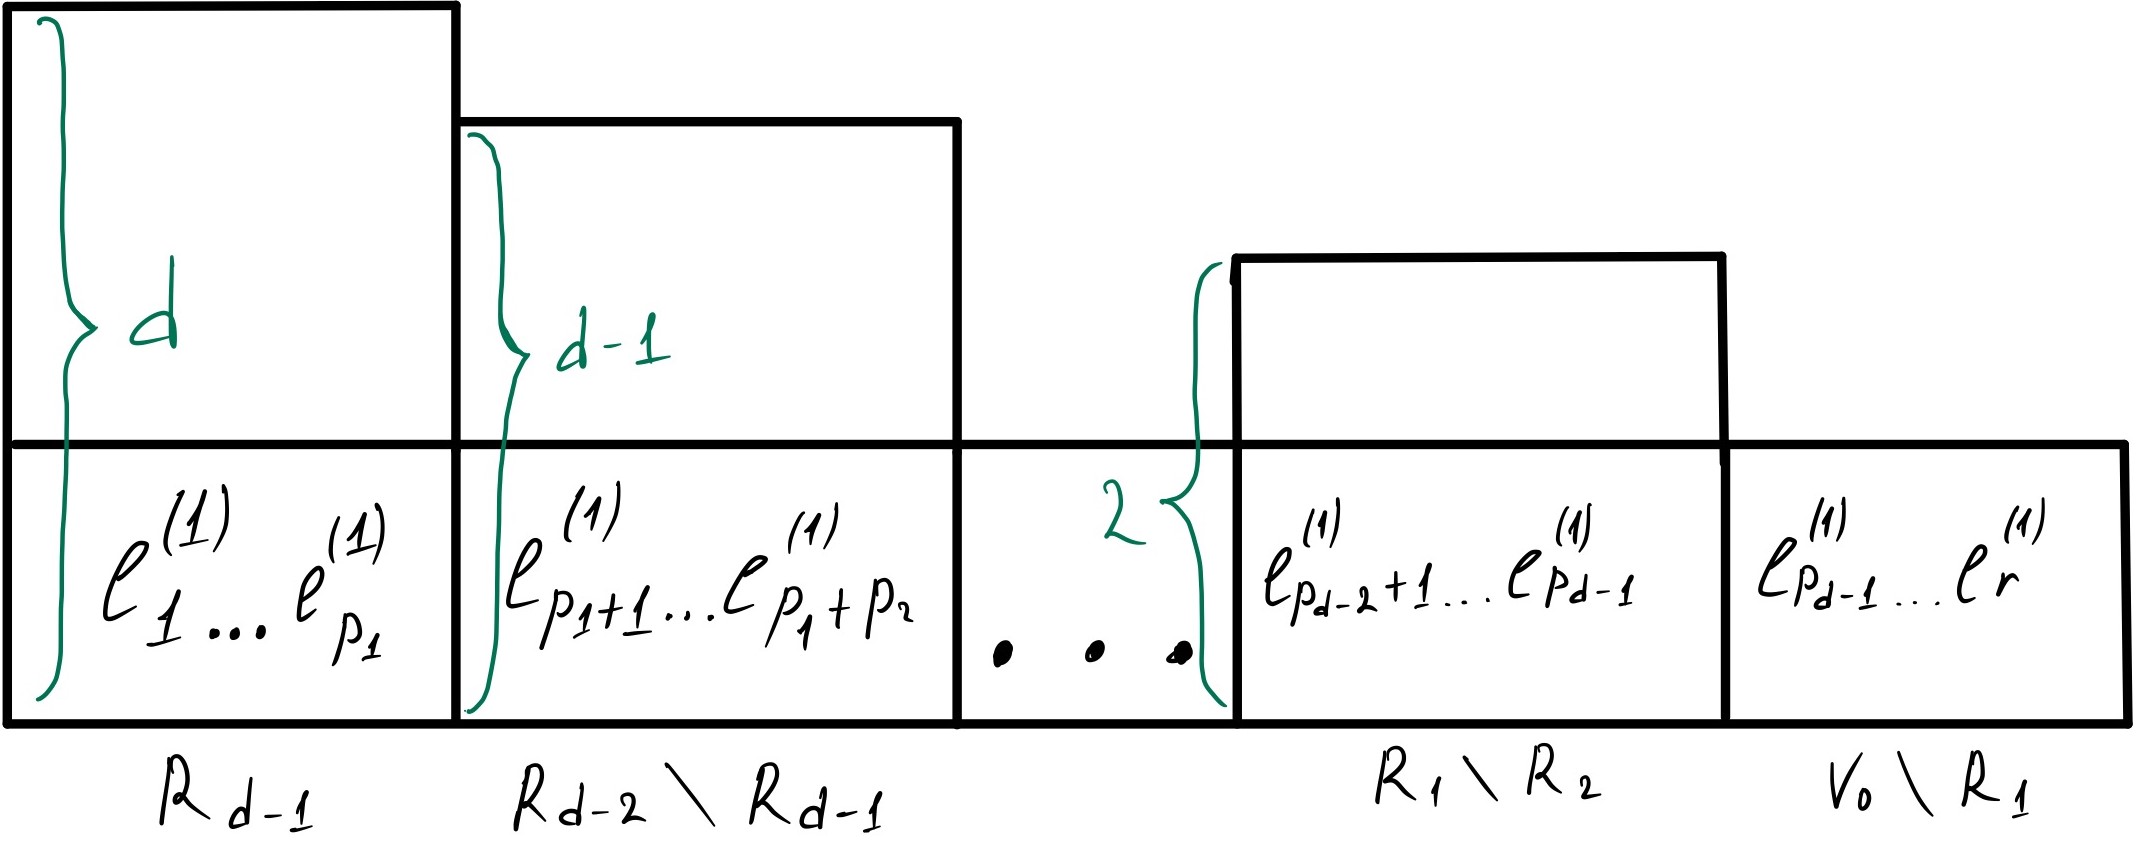 d
d-1
2
e_1^{(1)} ... e_{p_1}^{(1)} e_{p_1+1}^{(1)} ... e_{p_1+p_2}^{(1)} . . . e_{p_{d-2}+1}^{(1)} ... e_{p_{d-1}}^{(1)} e_{p_{d-1}}^{(1)} ... e_r^{(1)}
R_{d-1} R_{d-2} \ R_{d-1} R_1 \ R_2 V_0 \ R_1